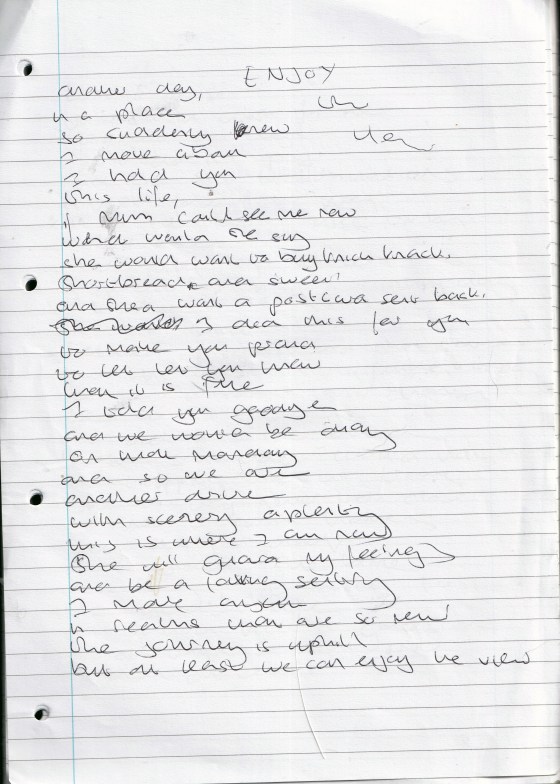 ENJOY
another day,
in a place
so suddenly new
I move about
I hold you
this life,
if mum could see me now
what would she say
she would want to buy knick knack,
shortbread, and sweets
and she'd want a postcard sent back.
I did this for you
to make you proud
to let let you know
that it is fine
I told you
and we would be okay
on Monday
and so we are
another drive
with scenery aplenty
this is where I am now
she will guard my feelings
and be a loving sentry
I move
in realms that are so new
the journey is uphill
but at least we can enjoy the view